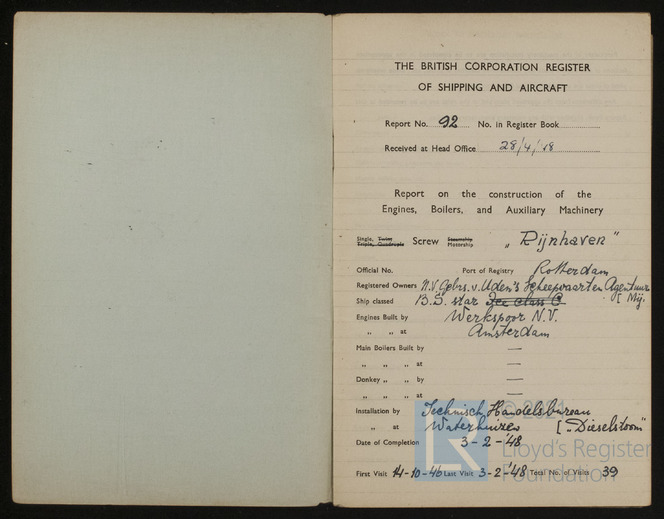 THE BRITISH CORPORATION REGISTER
OF SHIPPING AND AIRCRAFT
Report No. 92 No. in Register Book
Received at Head Office 28/4/48
Report on the construction of the
Engines, Boilers, and Auxiliary Machinery
Single, Twin, Triple, Quadruple Screw Steamship Motorship „Rijnhaven"
Official No. Port of Registry Rotterdam
Registered Owners N.V. Gebrs. v. Uden's Scheepvaart en Agentuur
Ship classed B.S. star Ice class C [Mij.
Engines Built by Werkspoor N.V.
„ „ at Amsterdam
Main Boilers Built by —
„ „ „ at —
Donkey „ „ by —
„ „ „ at —
Installation by Technisch Handelsbureau
„ at Waterhuizen [„Dieselstoom"
Date of Completion 3-2-'48
First Visit 14-10-46 Last Visit 3-2-'48 Total No. of Visits 39
© 2021
LR
Lloyd's Register
Foundation